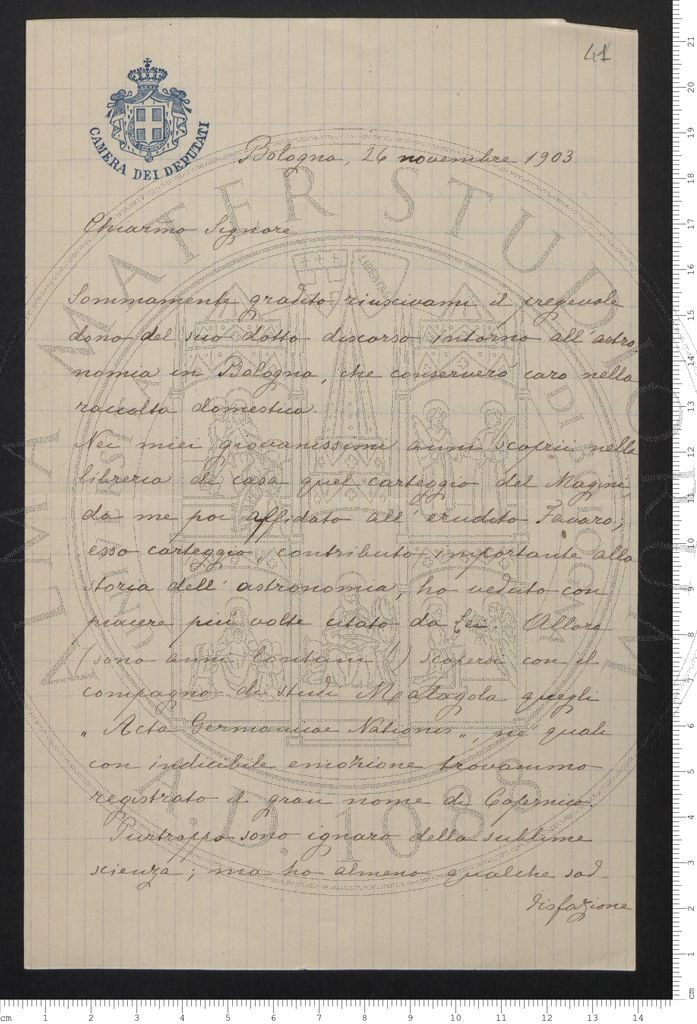 41
CAMERA DEI DEPUTATI
Bologna, 26 novembre 1903
Chiarmo Signore
Sommamente gradito riuscivami il pregevole
dono del suo dotto discorso intorno all'astro
nomia in Bologna, che conserverò caro nella
raccolta domestica.
Nei miei giovanissimi anni scoprii nella
libreria di casa quel carteggio del Magini,
da me poi affidato all'erudito Favaro;
esso carteggio, contributo importante alla
storia dell'astronomia, ho veduto con
piacere più volte citato da Lei. Allora
(sono anni lontani!) scopersi con il
compagno di studi Malagola quegli
„Acta Germanicae Nationis„, ne' quali
con indicibile emozione trovammo
registrato il gran nome di Copernico.
Purtroppo sono ignaro della sublime
scienza; ma ho almeno qualche sod-
disfazione
ALMA MATER STUDIORUM
A.D. 1088